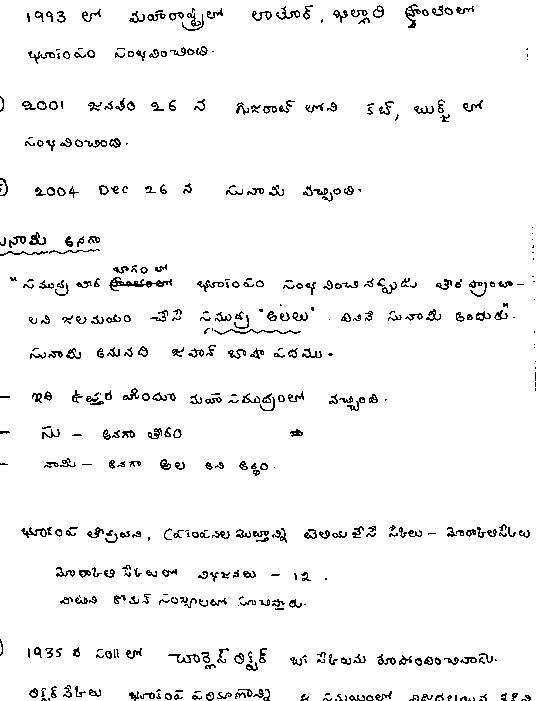 1993 లో మహారాష్ట్రలో లాతూర్, ఖిల్లారి ప్రాంతంలో
భూకంపం సంభవించింది.
2001 జనవరి 26 న గుజరాత్ లోని కచ్, బుజ్ లో
సంభవించింది.
2004 Dec 26 న సునామి వచ్చింది.
సునామి అనగా
"సముద్ర తీర భాగం లో భూకంపం సంభవించినప్పుడు తీర ప్రాంతా-
లని జలమయం చేసే సముద్ర "అలలు". వీనినే సునామి అందురు".
సునామి అనునది జపాన్ భాషా పదము.
- ఇది ఉత్తర హిందూ మహా సముద్రంలో వచ్చింది.
- సు - అనగా తీరం
- నామి - అనగా అల అని అర్థం.
భూకంప తీవ్రతని, ప్రకంపనల మొత్తాన్ని తెలియజేసే స్కేలు - మెర్కాలిస్కేలు
మెర్కాలి స్కేలులో విభజనలు - 12.
వాటిని రోమన్ సంఖ్యలలో సూచిస్తారు.
1935 వ సంIIలో చార్లెస్ రిక్టర్ ఈ స్కేలును రూపొందించినాడు.
రిక్టర్ స్కేలు భూకంప పరిమాణాన్ని ఆ సమయంలో విడుదలయిన శక్తిని